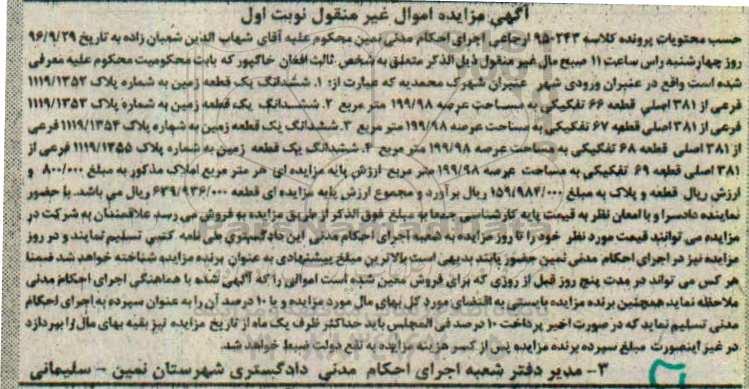 آگهی مزایده اموال غیر منقول نوبت اول
حسب محتویات پرونده کلاسه ۲۴۳-۹۵ ارجاعی اجرای احکام مدنی نمین محکوم علیه آقای شهاب الدین شعبان زاده به تاریخ ۹۶/۹/۲۹
روز چهارشنبه راس ساعت ۱۱ صبح مال غیر منقول ذیل الذکر متعلق به شخص ثالث افغان خاگپور که بابت محکومیت محکوم علیه معرفی
شده است واقع در عنبران ورودی شهر عنبران شهرک محمدیه که عبارت از: ۱. ششدانگ یک قطعه زمین به شماره پلاک ۱۱۱۹/۱۳۵۲
فرعی از ۳۸۱ اصلی قطعه ۶۶ تفکیکی به مساحت عرصه ۱۹۹/۹۸ متر مربع ۲. ششدانگ یک قطعه زمین به شماره پلاک ۱۱۱۹/۱۳۵۳
فرعی از ۳۸۱ اصلی قطعه ۶۷ تفکیکی به مساحت عرصه ۱۹۹/۹۸ متر مربع ۳. ششدانگ یک قطعه زمین به شماره پلاک ۱۱۱۹/۱۳۵۴ فرعی
از ۳۸۱ اصلی قطعه ۶۸ تفکیکی به مساحت عرصه ۱۹۹/۹۸ متر مربع ۴. ششدانگ یک قطعه زمین به شماره پلاک ۱۱۱۹/۱۳۵۵ فرعی از
۳۸۱ اصلی قطعه ۶۹ تفکیکی به مساحت عرصه ۱۹۹/۹۸ متر مربع ارزش پایه مزایده ای هر متر مربع املاک مذکور به مبلغ ۸۰۰/۰۰۰ و
ارزش ریال قطعه و پلاک به مبلغ ۱۵۹/۹۸۴/۰۰۰ ریال برآورد و مجموع ارزش پایه مزایده ای قطعه ۶۳۹/۹۳۶/۰۰۰ ریال می باشد. با حضور
نماینده دادسرا و با امعان نظر به قیمت پایه کارشناسی جمعا به مبلغ فوق الذکر از طریق مزایده به فروش می رسد علاقمندان به شرکت در
مزایده می توانند قیمت مورد نظر خود را تا روز مزایده به شعبه اجرای احکام مدنی این دادگستری طی نامه کتبی تسلیم نمایند و در روز
مزایده نیز در اجرای احکام مدنی نمین حضور یابند بدیهی است بالاترین مبلغ پیشنهادی به عنوان برنده مزایده شناخته خواهد شد ضمنا
هر کس می تواند در مدت پنج روز قبل از روزی که برای فروش معین شده است اموالی را که آگهی شده با هماهنگی اجرای احکام مدنی
ملاحظه نماید همچنین برنده مزایده بایستی به اقتضای مورد کل بهای مال مورد مزایده و یا ۱۰ درصد آن را به عنوان سپرده به اجرای احکام
مدنی تسلیم نماید که در صورت اخیر پرداخت ۱۰ درصد فی المجلس باید حداکثر ظرف یک ماه از تاریخ مزایده نیز بقیه بهای مال را بپردازد
در غیر اینصورت مبلغ سپرده برنده مزایده پس از کسر هزینه مزایده به نفع دولت ضبط خواهد شد.
۳- مدیر دفتر شعبه اجرای احکام مدنی دادگستری شهرستان نمین - سلیمانی